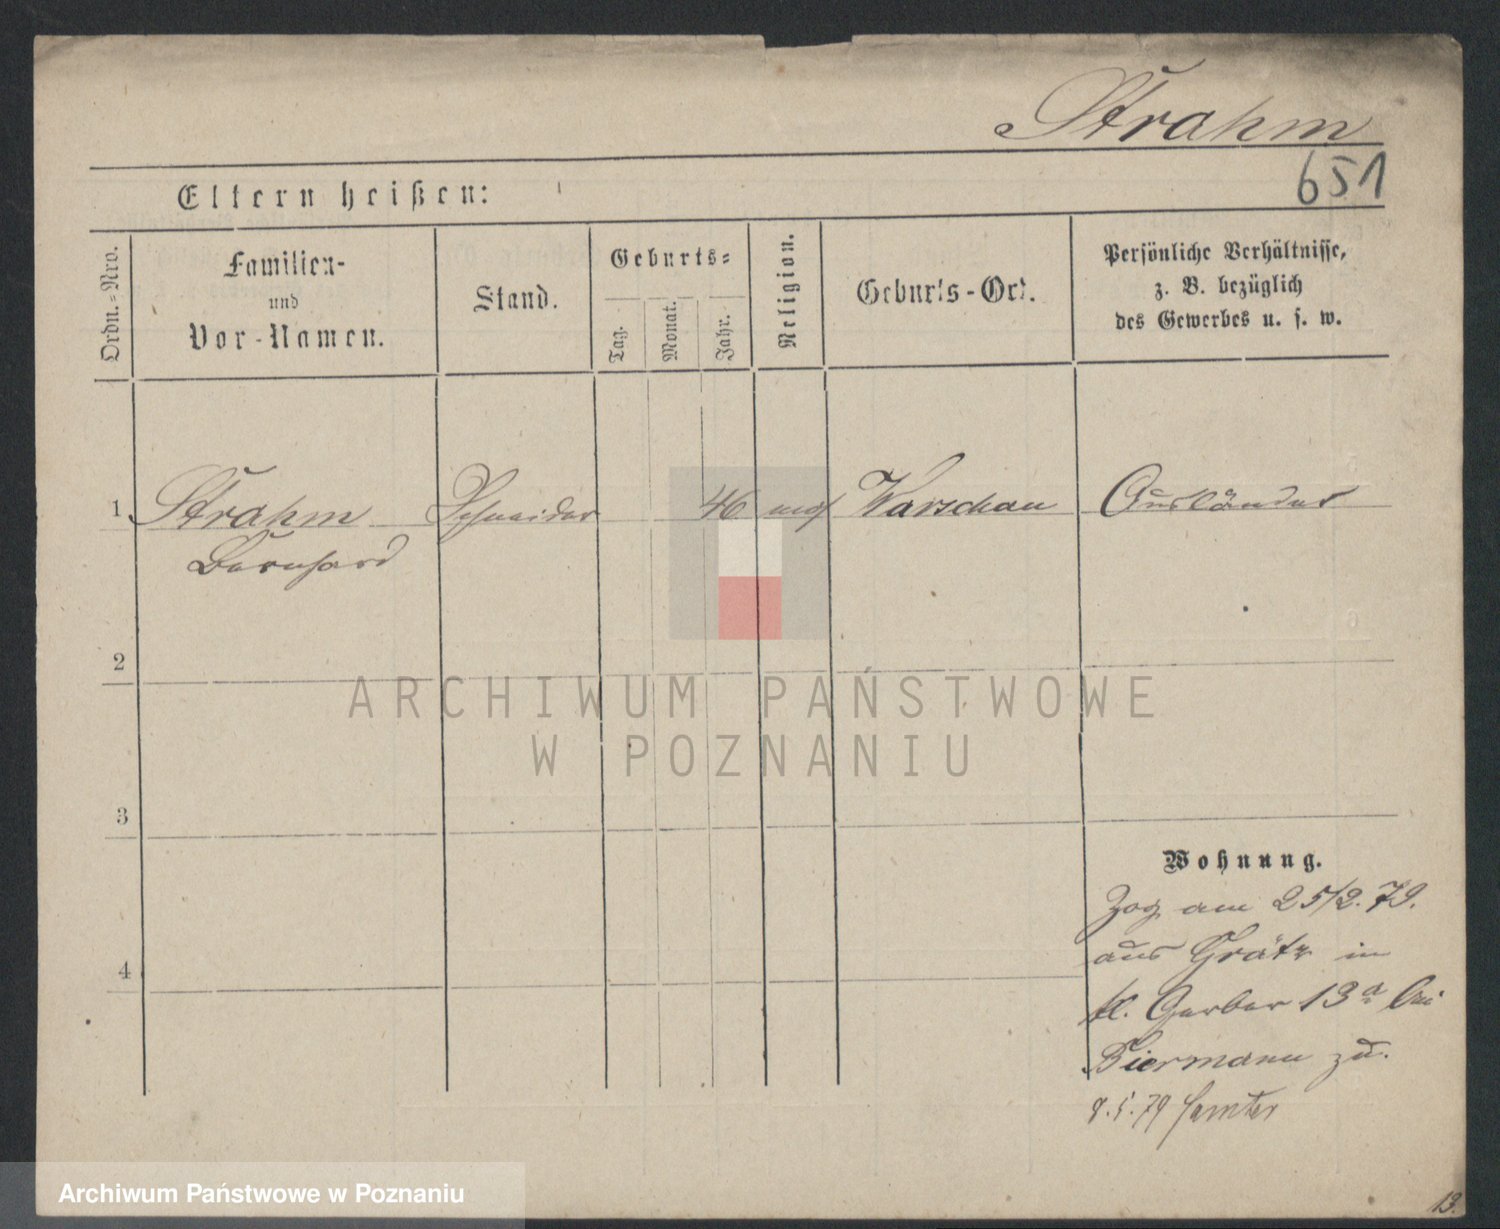 Strahm
651
Eltern heißen:
Ordn.-Nro.
Familien-
und
Vor-Namen.
Stand.
Geburts-
Tag.
Monat.
Jahr.
Religion.
Geburts-Ort.
Persönliche Verhältnisse,
z. B. bezüglich
des Gewerbes u. s. w.
1 Strahm Schneider 46 mos Warschau Ausländer
Bernhard
2
3
4
Wohnung.
Zog am 25/2.79.
aus Grätz in
kl. Gerber 13a bei
Biermann zu.
9.5.79 Samter
13.
ARCHIWUM PAŃSTWOWE
W POZNANIU
Archiwum Państwowe w Poznaniu